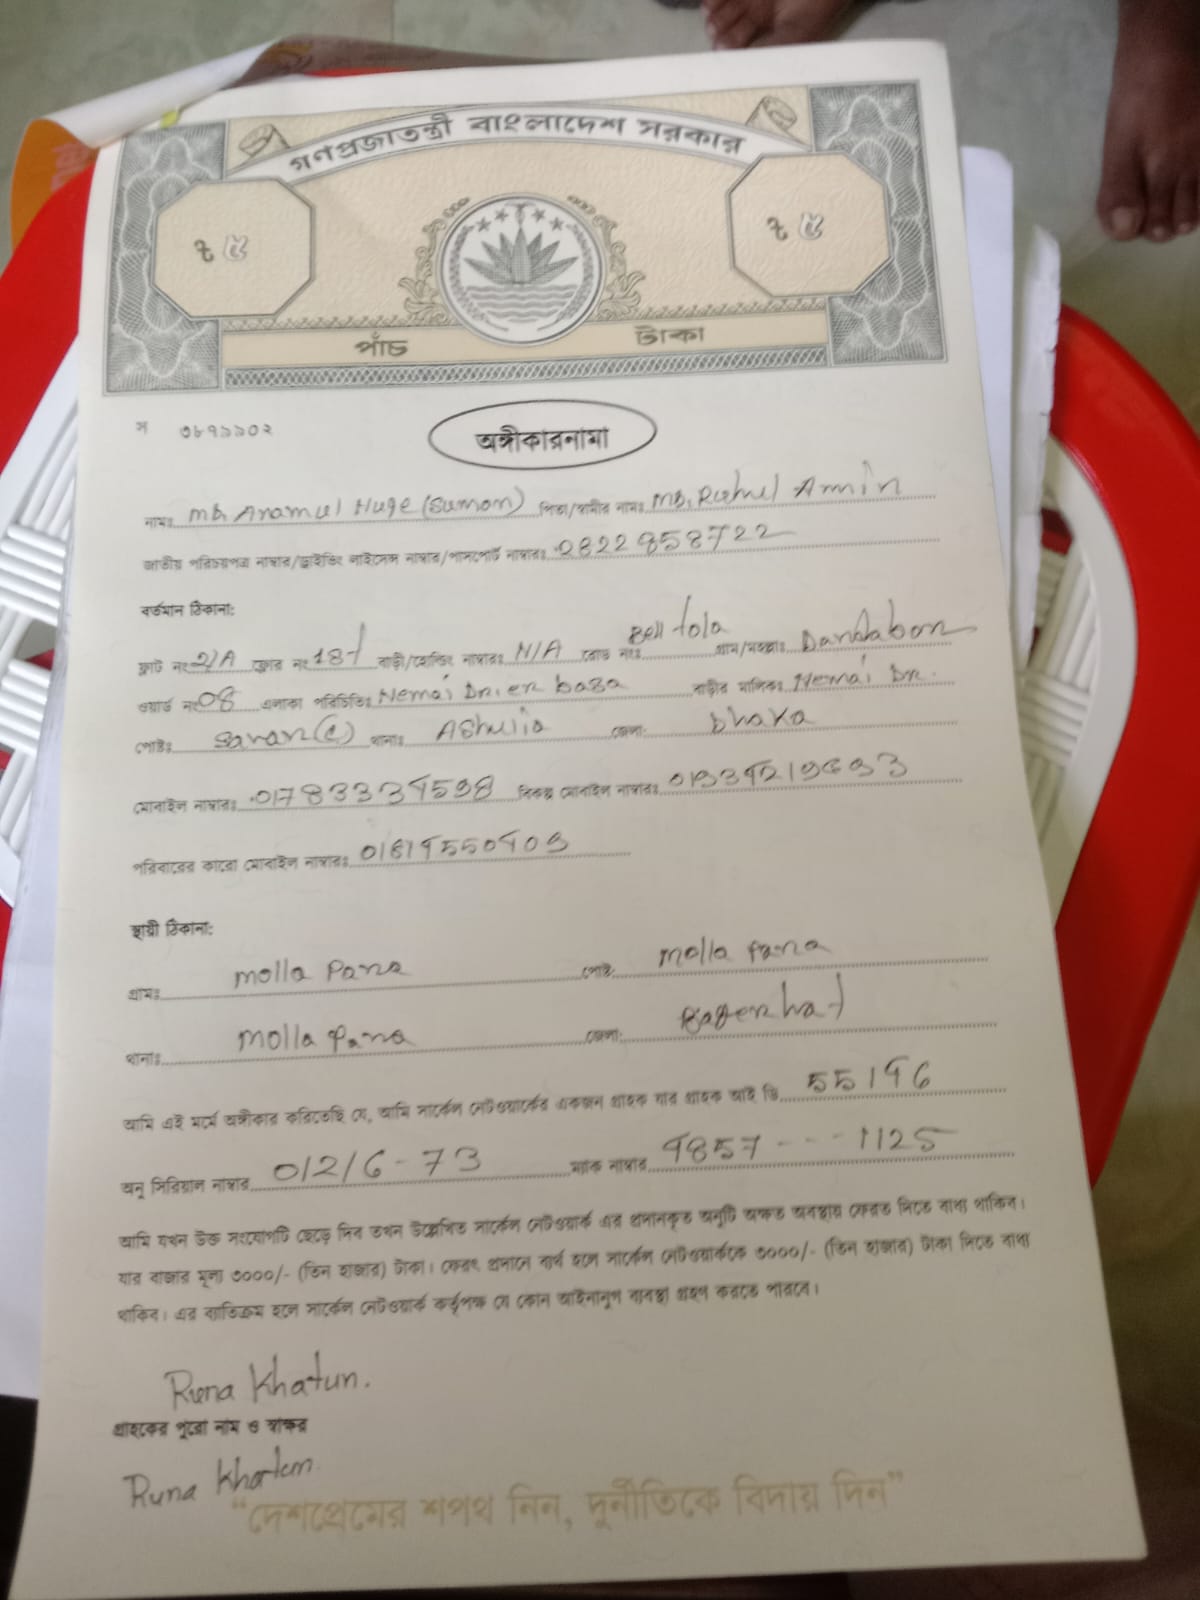 গণপ্রজাতন্ত্রী বাংলাদেশ সরকার
৳ ৫ ৳ ৫
পাঁচ টাকা
স ৩৮৭১১০২
অঙ্গীকারনামা
নামঃ Md. Anamul Huqe (Sumon) পিতা/স্বামীর নামঃ Md. Ruhul Amin
জাতীয় পরিচয়পত্র নাম্বার/ড্রাইভিং লাইসেন্স নাম্বার/পাসপোর্ট নাম্বারঃ 2822858722
বর্তমান ঠিকানা:
ফ্লাট নং 2/A ফ্লোর নং 1st বাড়ী/হোল্ডিং নাম্বারঃ N/A রোড নংঃ Bell tola গ্রাম/মহল্লাঃ Dandabor
ওয়ার্ড নং 08 এলাকা পরিচিতিঃ Nemai Dr. er basa বাড়ীর মালিকঃ Nemai Dr.
পোষ্টঃ Savar (C) থানাঃ Ashulia জেলা: Dhaka
মোবাইল নাম্বারঃ 01783334598 বিকল্প মোবাইল নাম্বারঃ 01934219693
পরিবারের কারো মোবাইল নাম্বারঃ 01614550403
স্থায়ী ঠিকানা:
গ্রামঃ Molla Para পোষ্ট: Molla para
থানাঃ Molla para জেলা: Bagerhat
আমি এই মর্মে অঙ্গীকার করিতেছি যে, আমি সার্কেল নেটওয়ার্কের একজন গ্রাহক যার গ্রাহক আই ডি 55146
অনু সিরিয়াল নাম্বার 01216-73 ম্যাক নাম্বার 4857---1125
আমি যখন উক্ত সংযোগটি ছেড়ে দিব তখন উল্লেখিত সার্কেল নেটওয়ার্ক এর প্রদানকৃত অনুটি অক্ষত অবস্থায় ফেরত দিতে বাধ্য থাকিব।
যার বাজার মূল্য ৩০০০/- (তিন হাজার) টাকা। ফেরৎ প্রদানে ব্যর্থ হলে সার্কেল নেটওয়ার্ককে ৩০০০/- (তিন হাজার) টাকা দিতে বাধ্য
থাকিব। এর ব্যতিক্রম হলে সার্কেল নেটওয়ার্ক কর্তৃপক্ষ যে কোন আইনানুগ ব্যবস্থা গ্রহণ করতে পারবে।
Runa Khatun.
গ্রাহকের পুরো নাম ও স্বাক্ষর
Runa Khatun.
“দেশপ্রেমের শপথ নিন, দুর্নীতিকে বিদায় দিন”